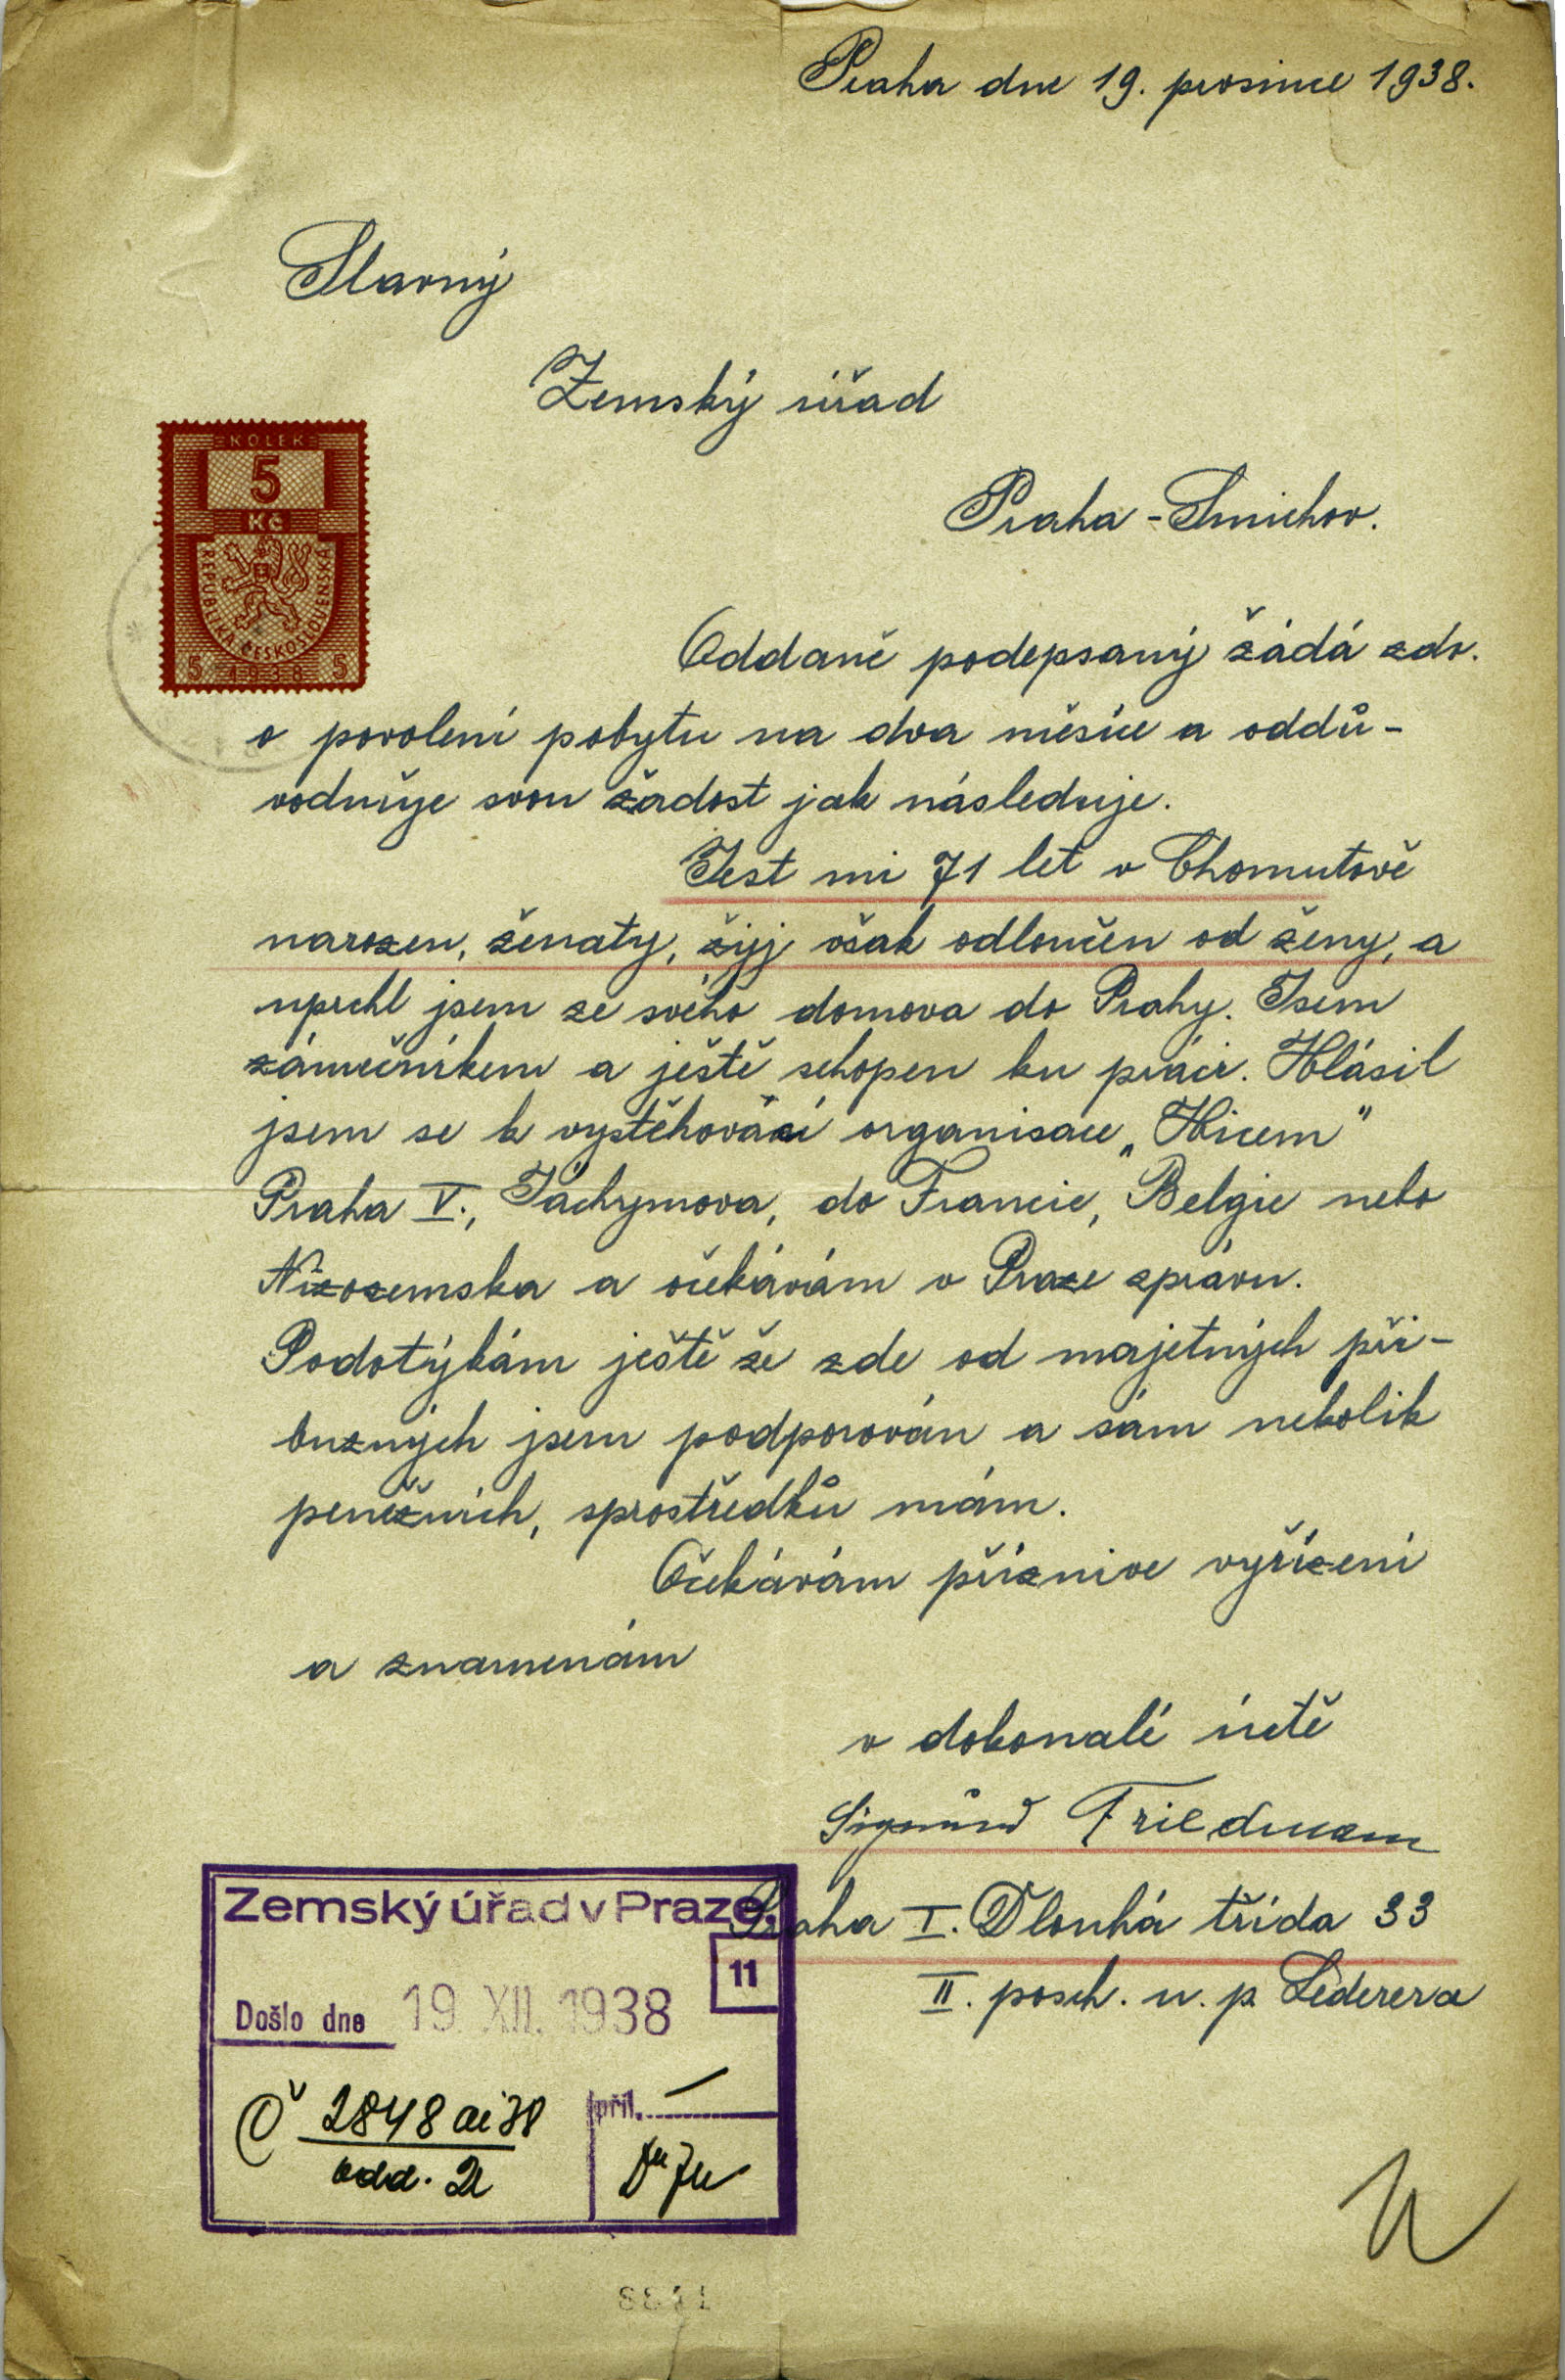 Praha dne 19. prosince 1938.
Slavný
Zemský úřad
Praha-Smichov.
KOLEK
5
Kč
REPUBLIKA ČESKOSLOVENSKÁ
5 1938 5
Oddaně podepsaný žádá zdv.
o povolení pobytu na dva měsíce a oddů-
vodnuje svou žádost jak následuje.
Jest mi 71 let v Chomutově
narozen, ženatý, žiji však odloučen od ženy, a
uprchl jsem ze svého domova do Prahy. Jsem
zámečníkem a ještě schopen ku práci. Hlásil
jsem se k vystěhovací organisace „Hicem"
Praha V., Jáchymova, do Francie, Belgie nebo
Nizozemska a očekávám v Praze zprávu.
Podotýkám ještě že zde od majetných pří-
buzných jsem podporován a sám nekolik
peněžních, sprostředků mám.
Očekávám příznive vyřízení
a znamenám
v dokonalé úctě
Sigmund Friedmann
Praha I. Dlouhá třída 33
II. posch. u. p. Lederera
Zemský úřad v Praze,
11
Došlo dne 19. XII. 1938
Č 2848 ai 38
odd. 2
příl. —